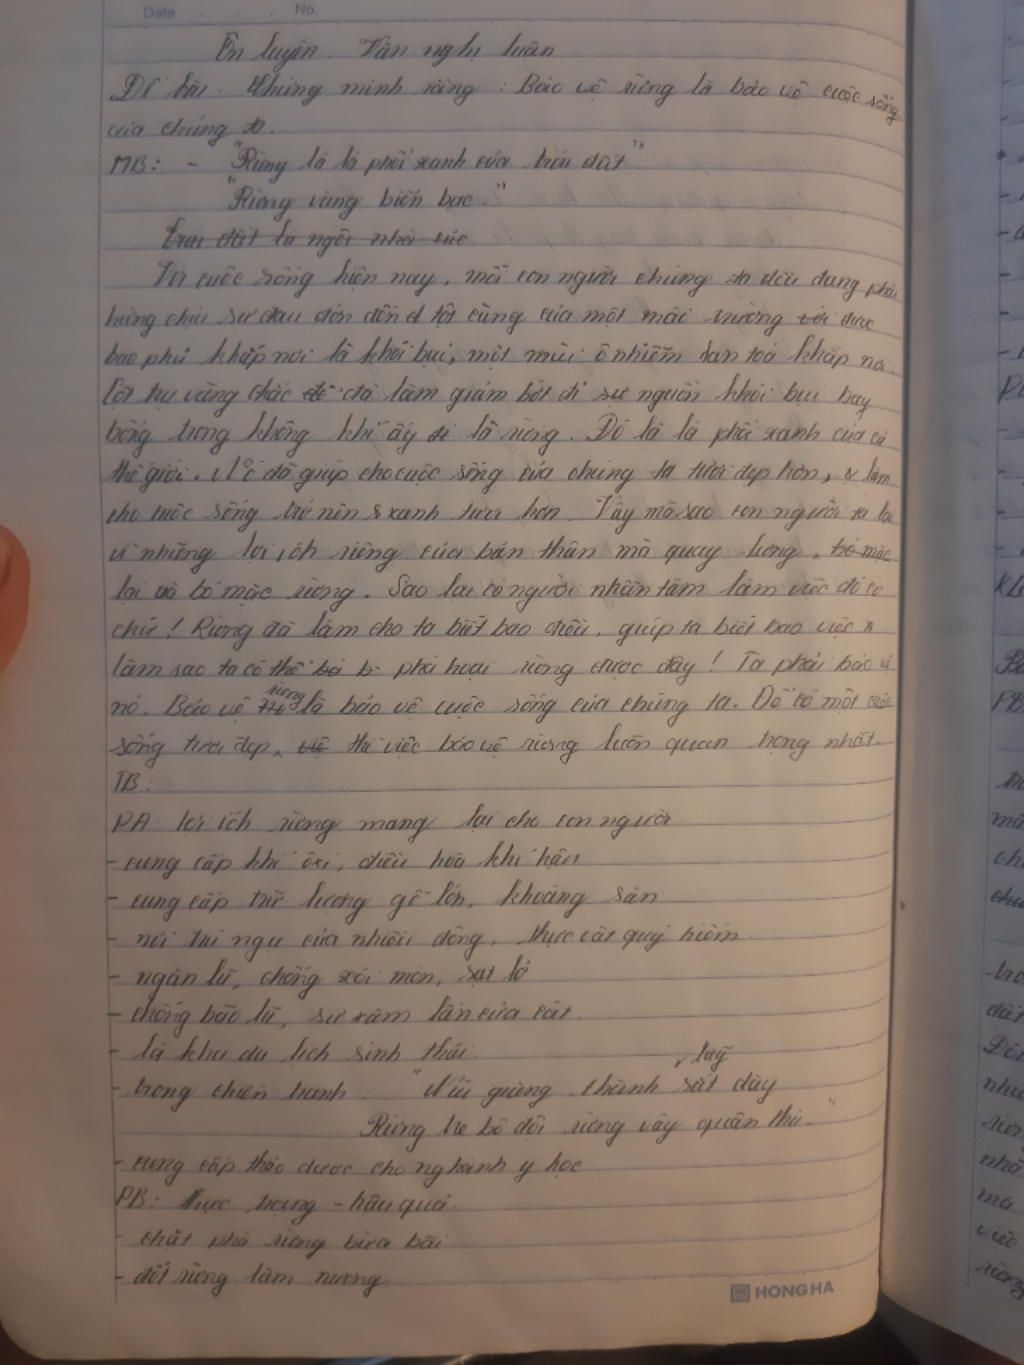 Date No.
Ôn luyện: Văn nghị luận
Đề bài: Chứng minh rằng: Bảo vệ rừng là bảo vệ cuộc sống
của chúng ta.
MB: - "Rừng là lá phổi xanh của trái đất"
"Rừng vàng biển bạc"
Trái đất là ngôi nhà
Với cuộc sống hiện nay, mỗi con người chúng ta đều đang phải
hứng chịu sự đau đớn đến tột cùng của một môi trường được
bao phủ khắp nơi là khói bụi, một mùi ô nhiễm lan toả khắp nơi.
Cột trụ vững chắc để đã làm giảm bớt đi sự nguồn khói bụi bay
bổng trong không khí ấy là rừng. Đó là lá phổi xanh của cả
thế giới. Nó đã giúp cho cuộc sống của chúng ta tươi đẹp hơn, làm
cho cuộc sống trở nên xanh tươi hơn. Vậy mà sao con người ta lại
vì những lợi ích riêng của bản thân mà quay lưng, bỏ mặc
lại và bỏ mặc rừng. Sao lại có người nhẫn tâm làm việc đó cơ
chứ! Rừng đã làm cho ta biết bao điều, giúp ta biết bao việc
làm sao ta có thể phá hoại rừng được đây! Ta phải bảo vệ
nó. Bảo vệ rừng là bảo vệ cuộc sống của chúng ta. Để có một cuộc
sống tươi đẹp, thì việc bảo vệ rừng luôn quan trọng nhất.
TB:
PA: lợi ích rừng mang lại cho con người
- cung cấp khí ôxi, điều hoà khí hậu
- cung cấp trữ lượng gỗ lớn, khoáng sản
- nơi trú ngụ của nhiều động, thực vật quý hiếm
- ngăn lũ, chống xói mòn, sạt lở
- chống bão lũ, sự xâm lấn của cát.
- là khu du lịch sinh thái
- trong chiến tranh: "Núi giăng thành luỹ sắt dày
Rừng che bộ đội rừng vây quân thù."
- cung cấp thảo dược cho nghành y học
PB: thực trạng - hậu quả.
- chặt phá rừng bừa bãi
- đốt rừng làm nương
HONG HA